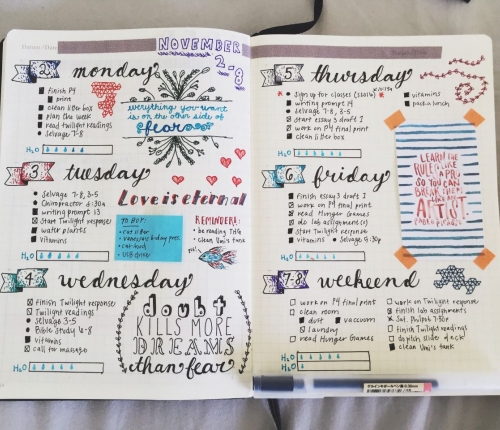 NOVEMBER
2-8
2 monday
finish P4
print
clean litter box
plan the week
read twilight readings
selvage 7-8
H2O
everything you want
is on the other side of
fear
3 tuesday
Selvage 7-8, 3-5
Chiropractor 6:30a
writing prompt 13
Start Twilight response
water plants
vitamins
H2O
Love is eternal
TO BUY:
cat litter
vanessa's b/day pres.
cat food
USB drive
REMINDERS:
be reading THG
clean Uni's tank
4 wednesday
finish Twilight response
Twilight readings
selvage 3-5
Bible Study 6-8
vitamins
call for massage
H2O
H2O
doubt
KILLS MORE
DREAMS
than fear
5 thursday
Sign up for classes
writing prompt 14
selvage 7-8, 3-5
start essay 3 draft 2
work on P4 final print
clean litter box
vitamins
pack a lunch
H2O
6 friday
finish essay 3 draft 2
work on P4 final print
read Hunger Games
do lab assignment(s)
start Twilight response
vitamins
selvage
H2O
LEARN THE
RULES LIKE
A PRO
SO YOU CAN
BREAK THEM
LIKE AN
ARTIST.
PABLO PICASSO
7-8 weekend
work on P4 final print
clean room
dust
vaccuum
laundry
read Hunger Games
work on Twilight response
finish lab assignments
finish Twilight readings
clean Uni's tank
H2O
H2O